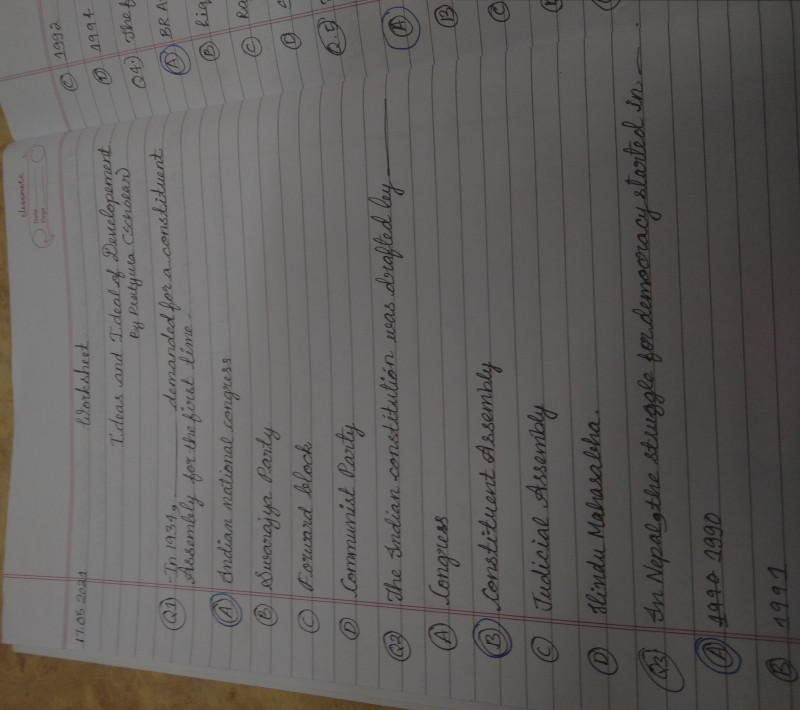 classmate
Date
Page
17.05.2021 Worksheet
Ideas and Ideal of Developement
By Pratyusa (scholar)
Q1 In 1934, ______ demanded for a constituent
Assembly for the first time.
A Indian national congress
B Swarajya Party
C Forward block
D Communist Party
Q2 The Indian constitution was drafted by ______
A Congress
B Constituent Assembly
C Judicial Assembly
D Hindu Mahasabha.
Q3 In Nepal, the struggle for democracy started in ___.
A 1990
B 1991
C 1992
D 1994
Q4) The
A BRA
B
C Ra
D
Q5
A
B
C